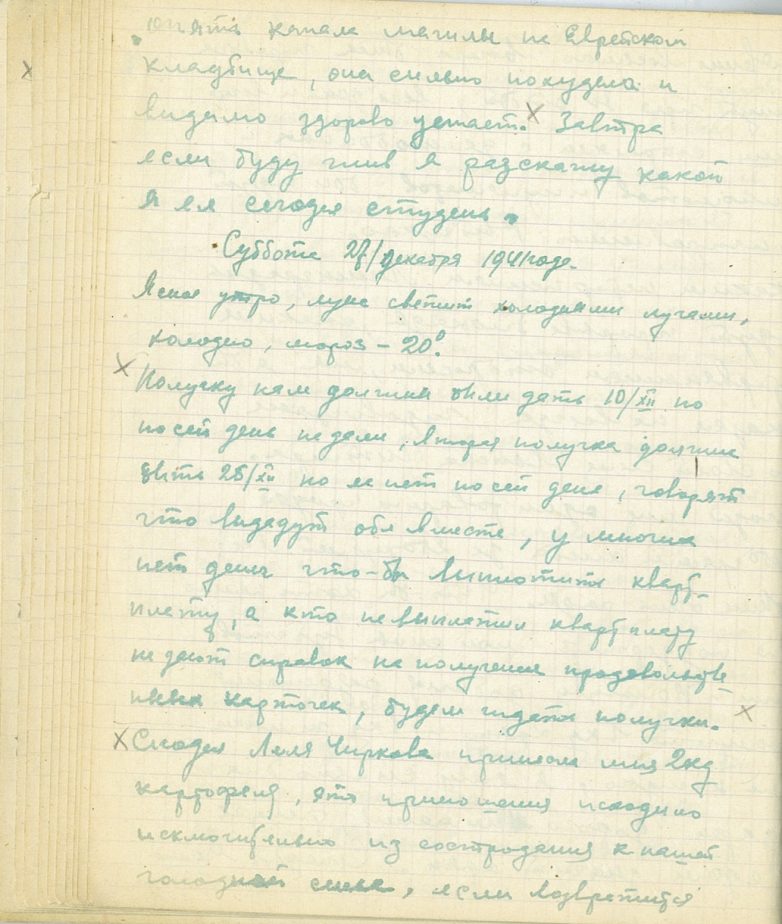 опять копала могилы на Еврейском
кладбище, она сильно похудела и
видимо здорово устает. Завтра
если буду жив я разскажу какой
я ел сегодня студень.
Суббота 27/декабря 1941 года.
Ясное утро, луна светит холодными лучами,
холодно, мороз – 20°.
Получку нам должны были дать 10/XII но
по сей день не дали, вторая получка должна
быть 25/XII но и нет по сей день, говорят
что выдадут обе вместе, у многих
нет денег что-бы выплотить кварт-
плату, а кто не выплатил квартплату
не дают справок на получение продовольстве-
нных карточек, будем ждать получки.
Сегодня Леля Чиркова принесла мне 2 кг
картофеля, это приношения исходило
исключительно из сострадания к нашей
голодной семье, если возвратится